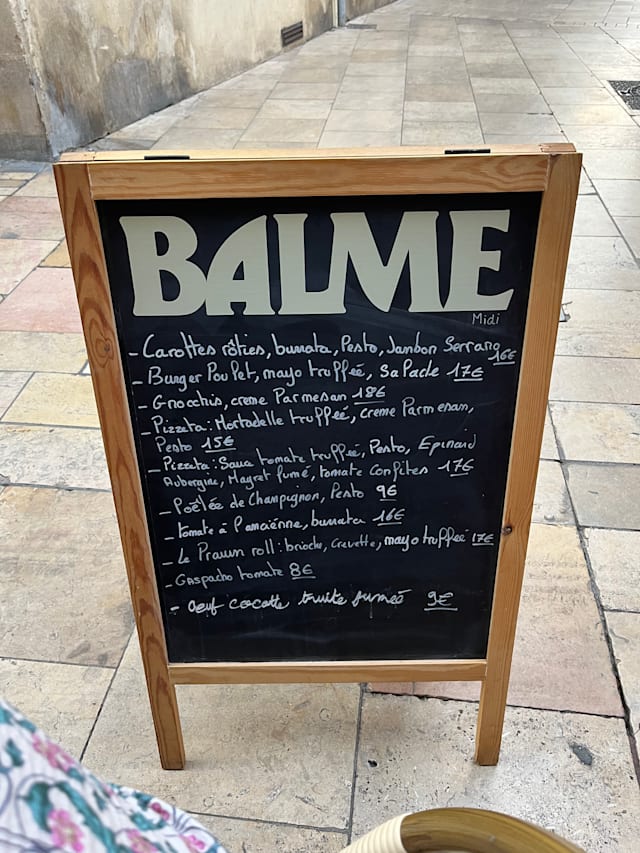 BALME
Midi
- Carottes rôties, burrata, Pesto, Jambon Serrano 16€
- Burger Poulet, mayo truffée, Salade 17€
- Gnocchis, creme Parmesan 18€
- Pizzeta: Mortadelle truffée, creme Parmesan,
Pesto 15€
- Pizzeta: Sauce tomate truffée, Pesto, Epinard
Aubergine, Magret fumé, tomate Confites 17€
- Poêlée de Champignon, Pesto 9€
- tomate à l'ancienne, burrata 16€
- Le Prawn roll: brioche, Crevette, mayo truffée 17€
- Gaspacho tomate 8€
- Oeuf cocotte truite fumée 9€